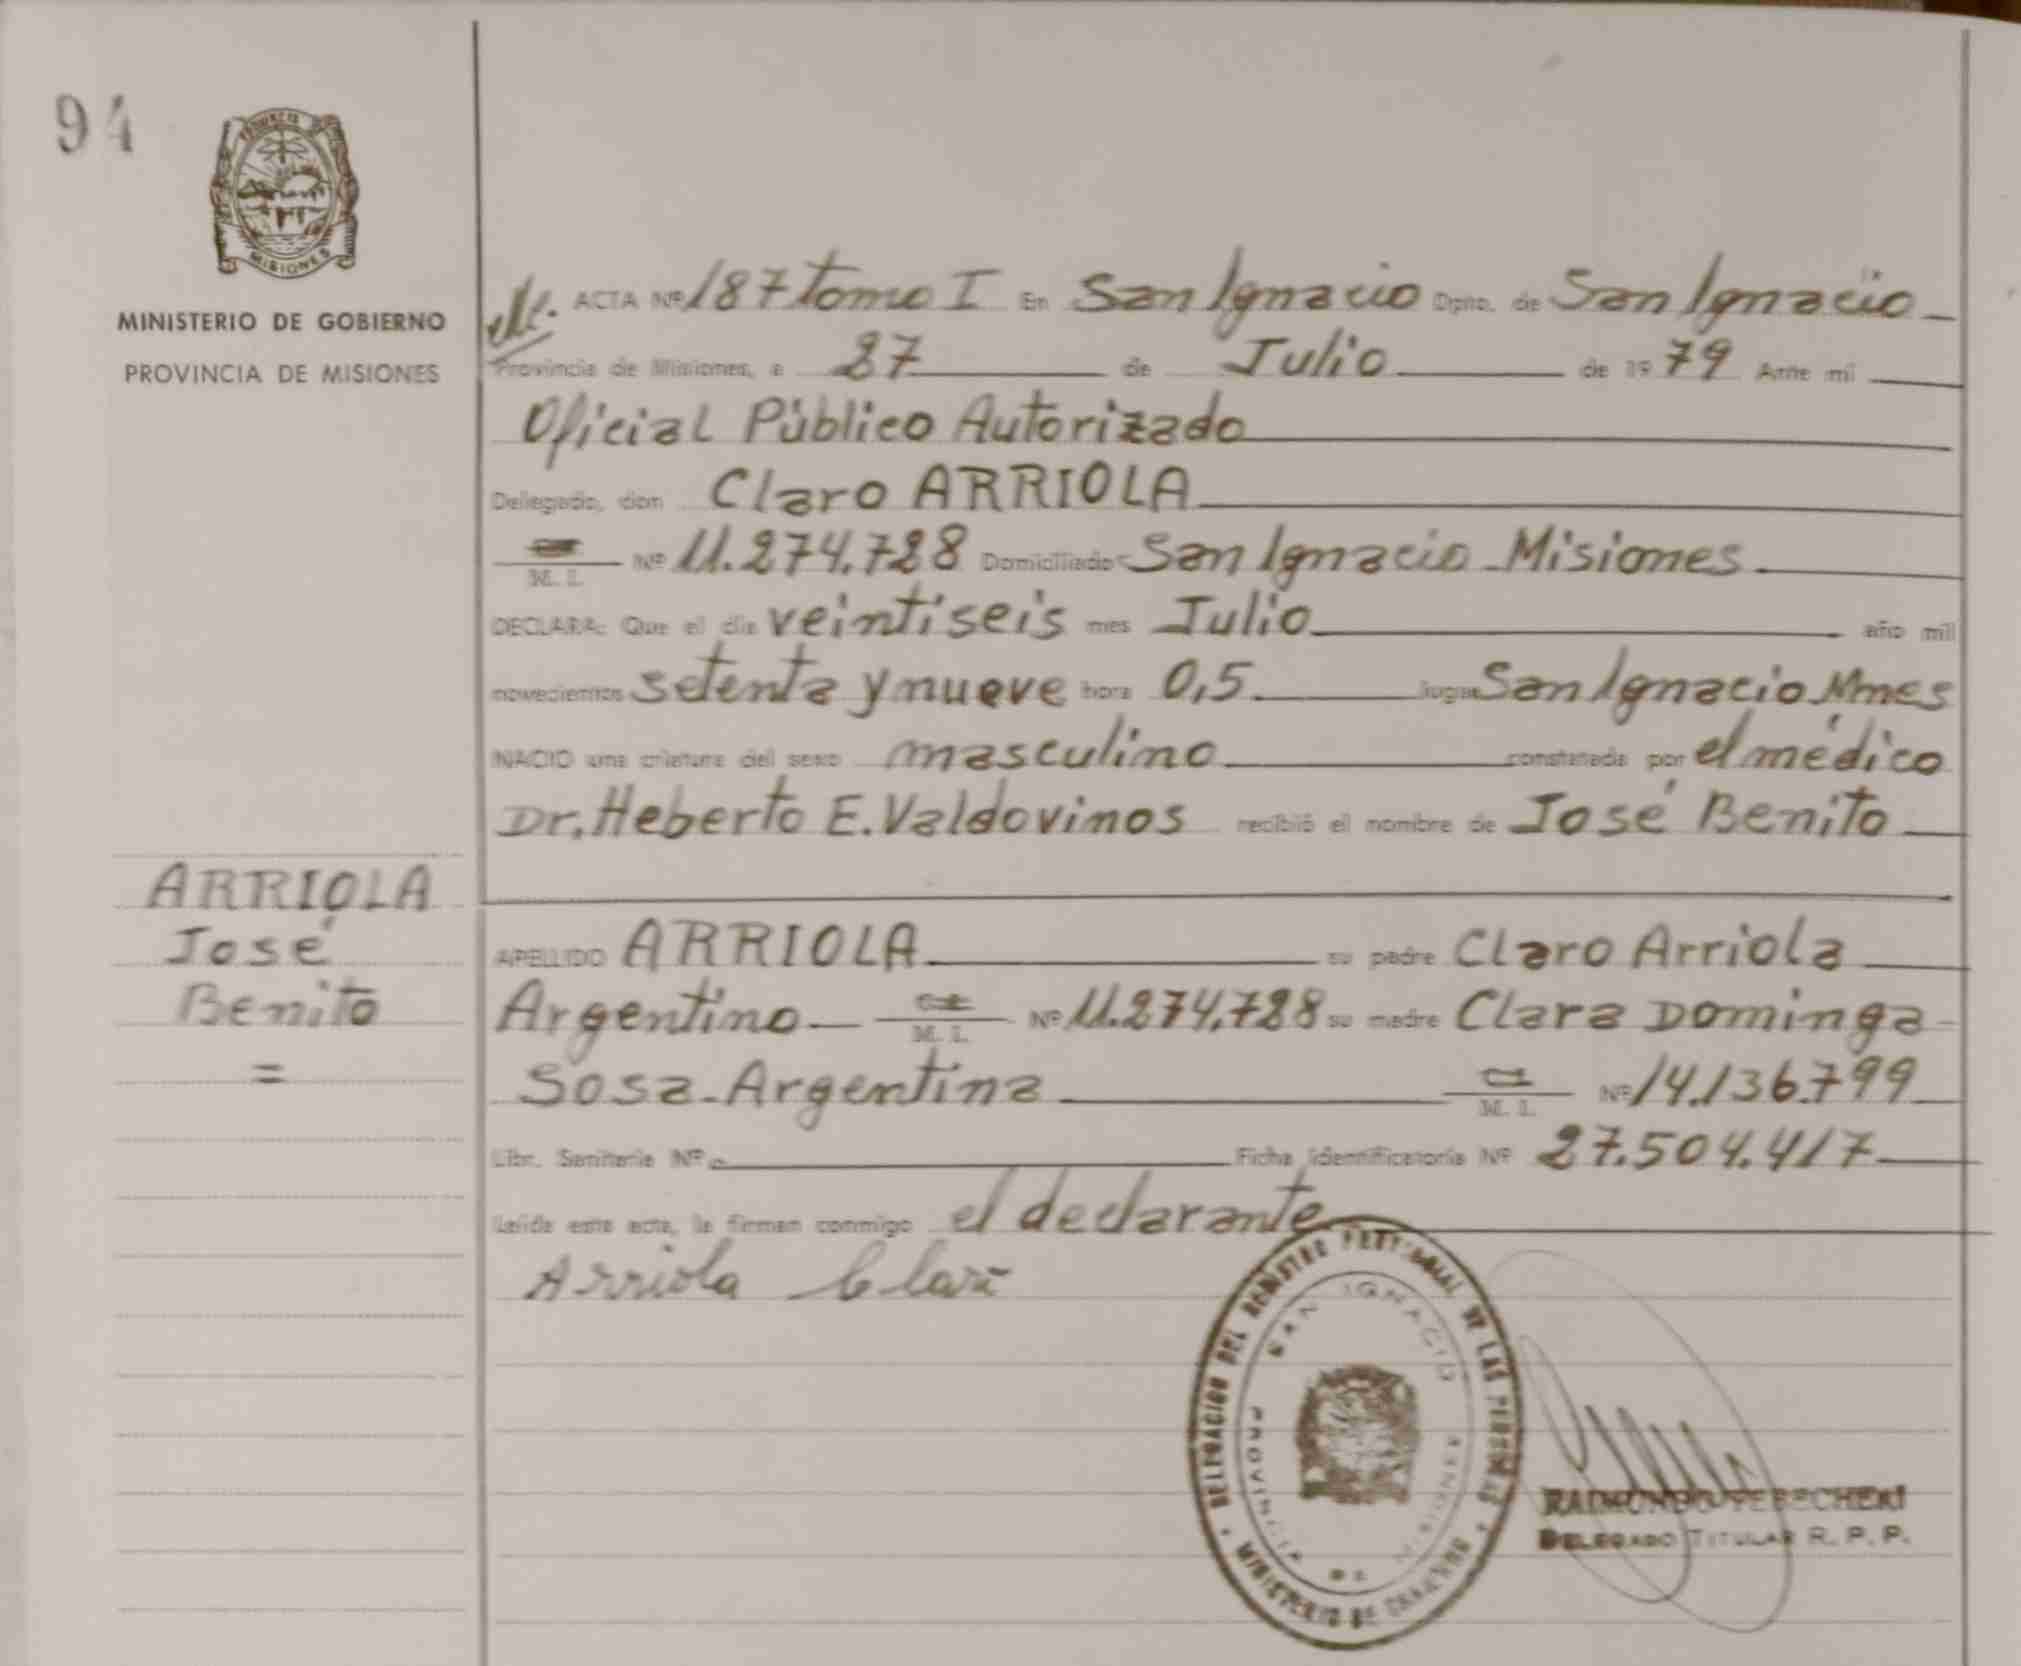 94
PROVINCIA DE
MISIONES
MINISTERIO DE GOBIERNO
PROVINCIA DE MISIONES
ARRIOLA
José
Benito
=
ACTA Nº 187 tomo I En San Ignacio Dpto. de San Ignacio
Provincia de Misiones, a 27 de Julio de 1979 Ante mi
Oficial Público Autorizado
Delegado, don Claro ARRIOLA
M. I. Nº 11.274.728 Domiciliado San Ignacio - Misiones
DECLARA: Que el día veintiseis mes Julio año mil
novecientos setenta y nueve hora 0,5 lugar San Ignacio Mnes
NACIO una criatura del sexo masculino constatada por el médico
Dr. Heberto E. Valdovinos recibió el nombre de José Benito
APELLIDO ARRIOLA su padre Claro Arriola
Argentino M. I. Nº 11.274.728 su madre Clara Dominga
Sosa - Argentina M. I. Nº 14.136.799
Libr. Sanitaria Nº Ficha identificatoria Nº 27.504.417
Leída esta acta, la firman conmigo el declarante
Arriola Claro
DELEGACION DEL REGISTRO PROVINCIAL DE LAS PERSONAS
SAN IGNACIO
PROVINCIA DE MISIONES
MINISTERIO DE GOBIERNO
DELEGADO TITULAR R. P. P.